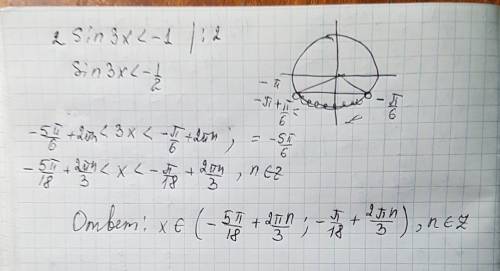 2 Sin3x < -1 | :2
Sin3x < -1/2
-π
-π + π/6 =
-π/6
-5π/6 + 2πn < 3x < -π/6 + 2πn ; = -5π/6
-5π/18 + 2πn/3 < x < -π/18 + 2πn/3 , n ∈ Z
Ответ: x ∈ (-5π/18 + 2πn/3 ; -π/18 + 2πn/3) , n ∈ Z